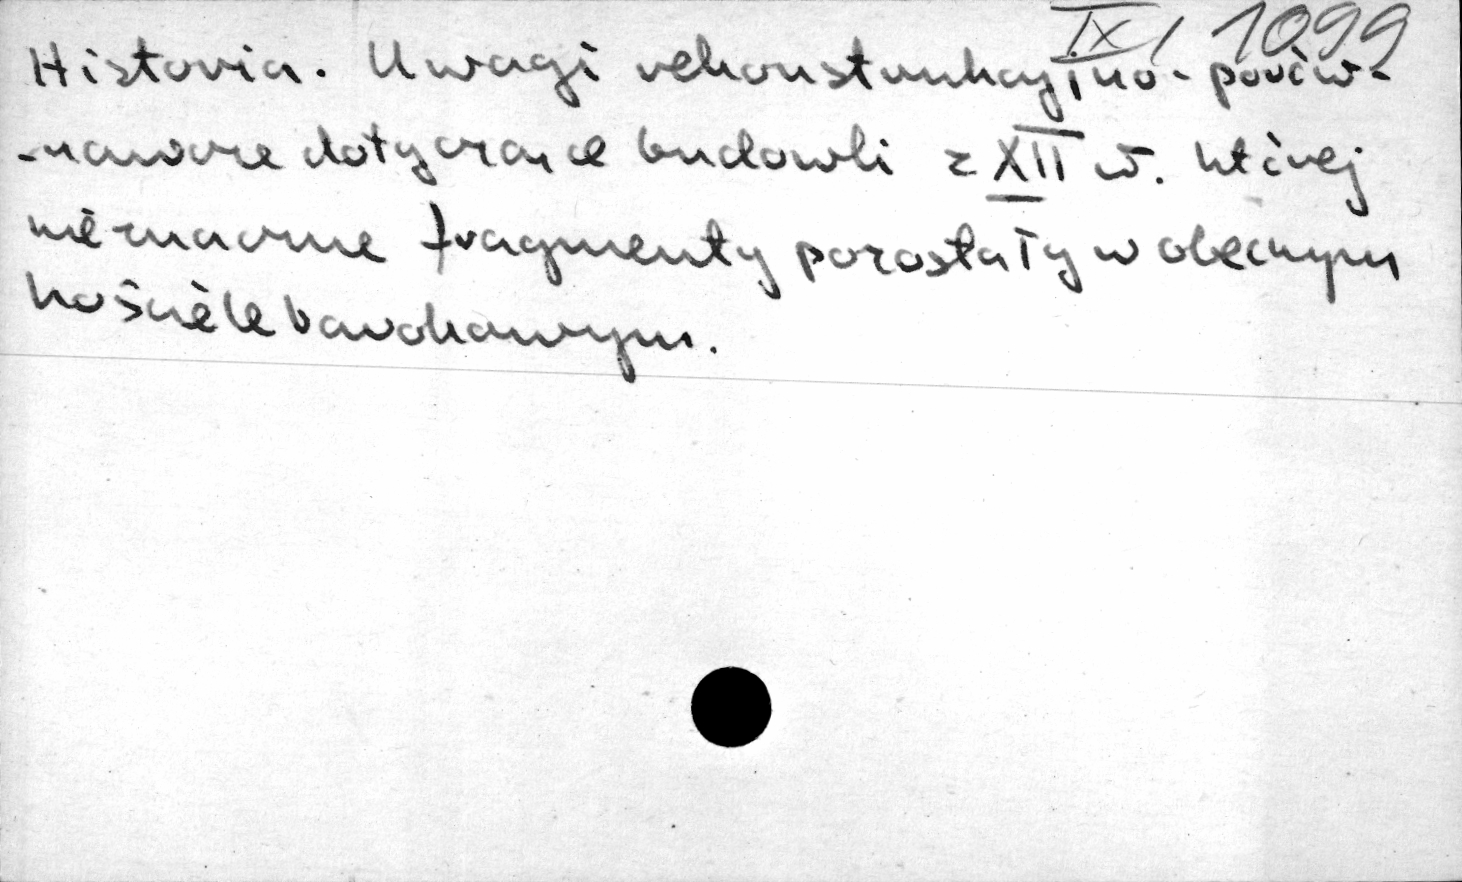 IX/1099
Historia. Uwagi rekonstrukcyjno-porów-
-nawcze dotyczące budowli z XII w. której
nieznaczne fragmenty pozostały w obecnym
kościele barokowym.